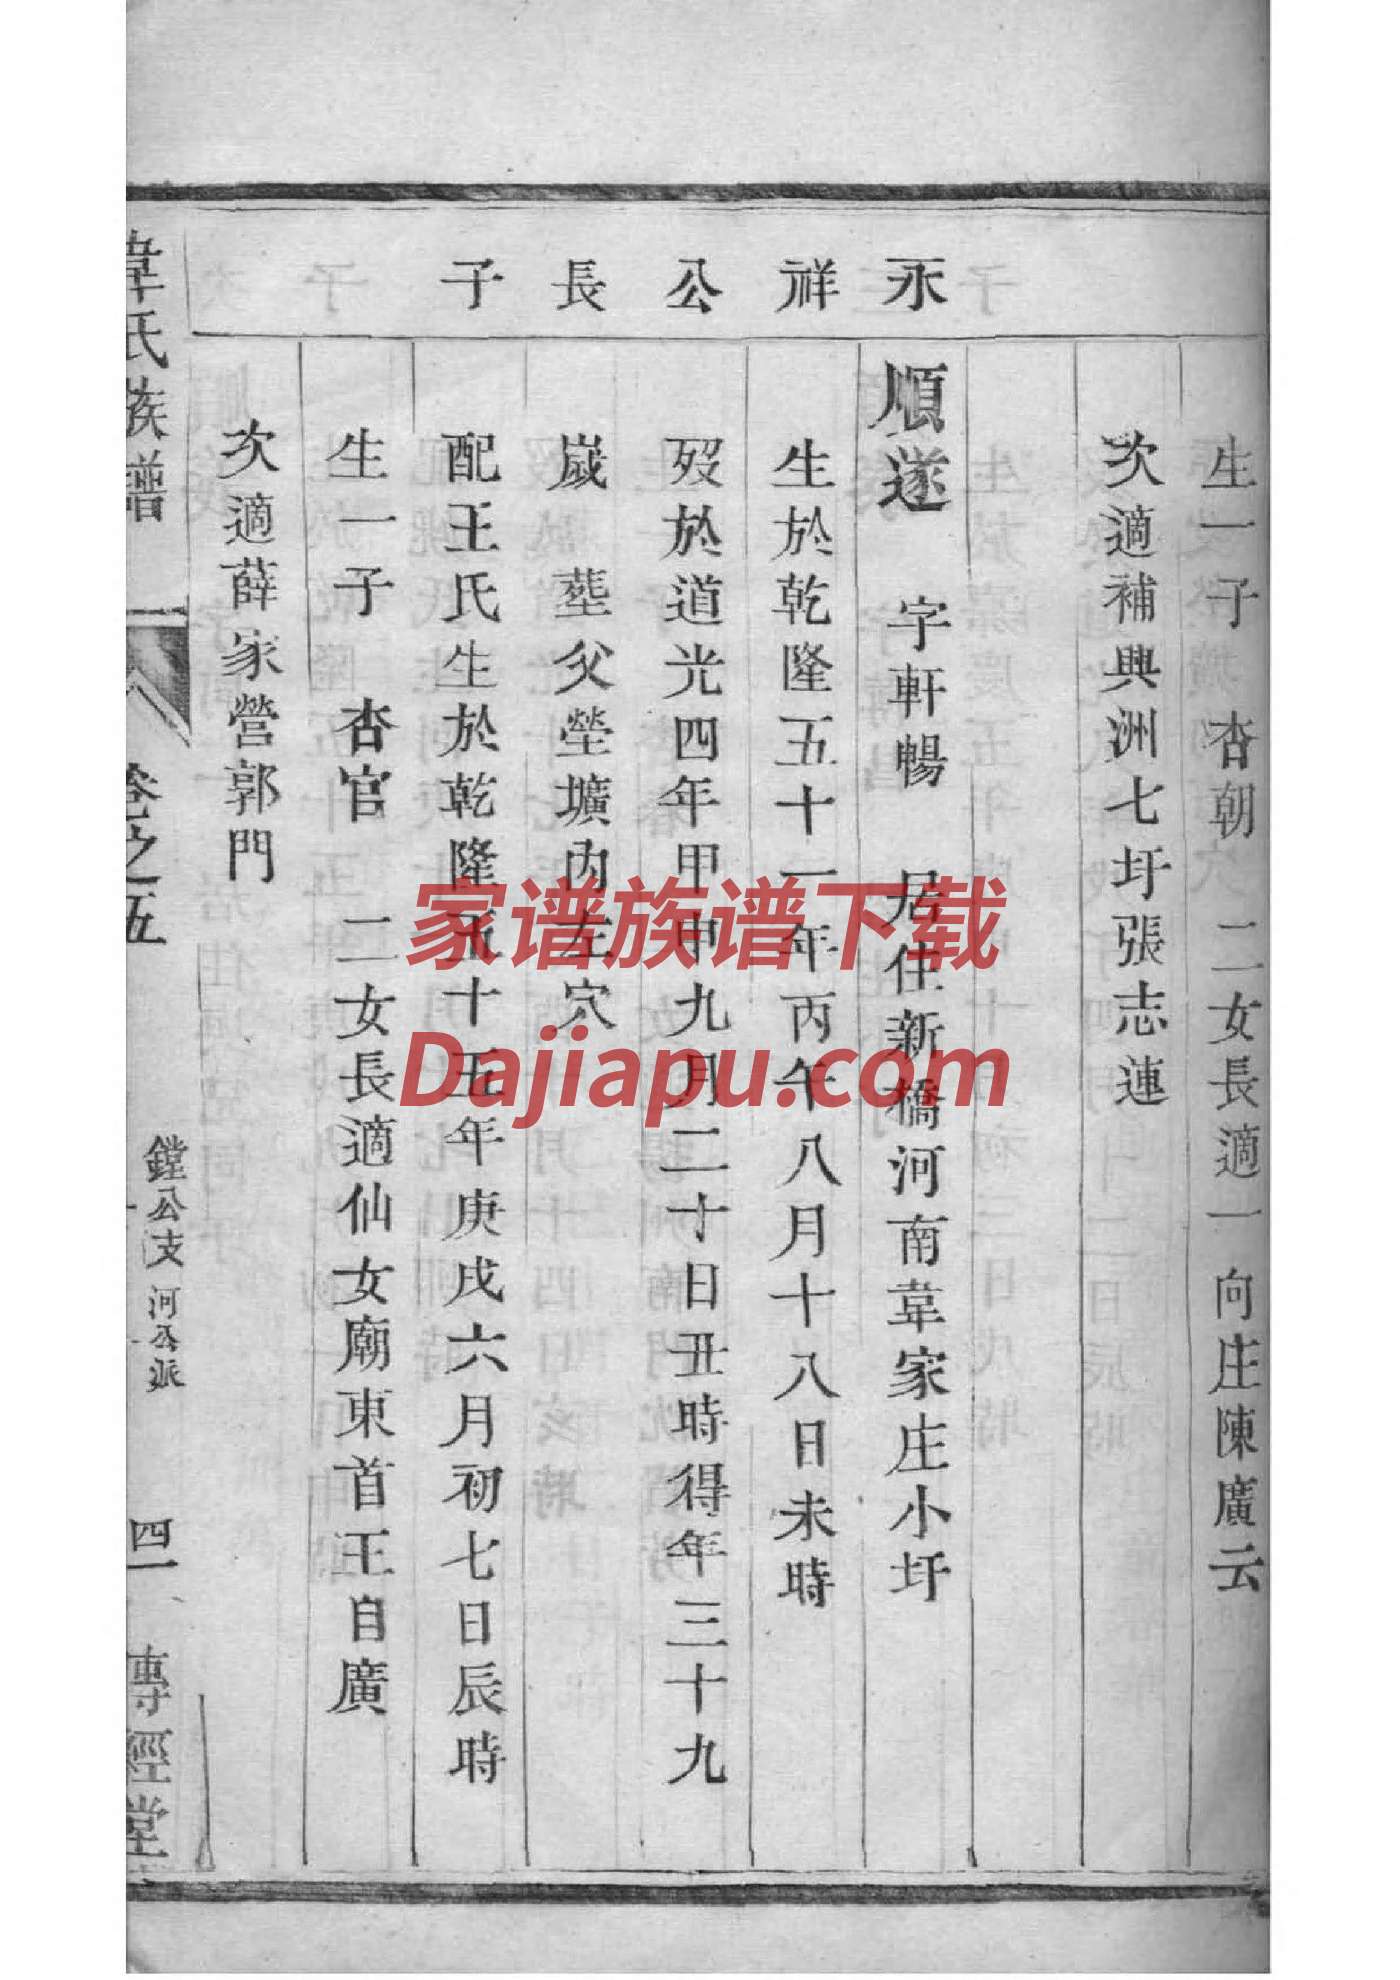 生一子 杏朝 二女長適一向庄陳廣云
次適補興洲七圩張志連
永祥公長子
順遂 字軒暢 居住新橋河南韋家庄小圩
生於乾隆五十一年丙午八月十八日未時
歿於道光四年甲申九月二十日丑時得年三十九
歲 塟父塋壙內左穴
配王氏生於乾隆五十五年庚戌六月初七日辰時
生一子 杏官 二女長適仙女廟東首王自廣
次適薛家營郭門
韋氏族譜 卷之五 鏜公支 河公派 四一 傳經堂
家谱族谱下载
Dajiapu.com